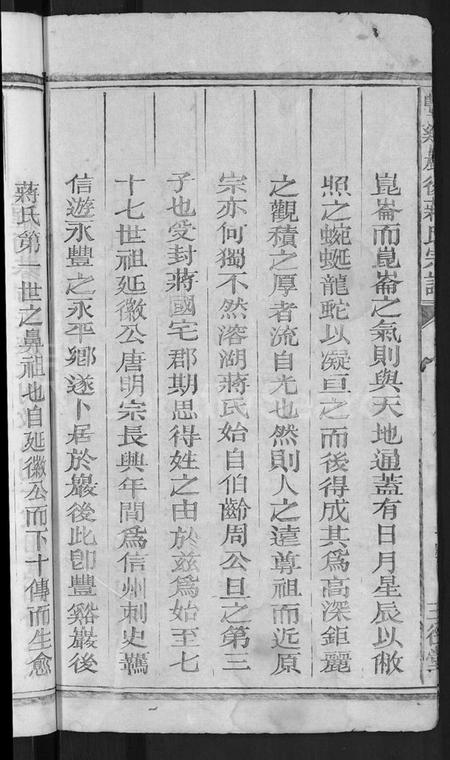 豐谿巖後蔣氏宗譜
崑崙而崑崙之氣則與天地通蓋有日月星辰以敝
照之蜿蜒龍蛇以凝亘之而後得成其為高深鉅麗
之觀積之厚者流自光也然則人之遠尊祖而近原
宗亦何獨不然溶湖蔣氏始自伯齡周公旦之第三
子也受封蔣國宅郡期思得姓之由於兹為始至七
十七世祖延徽公唐明宗長興年間為信州刺史
信遊永豐之永平鄉遂卜居於巖後此卽豐谿巖後
蔣氏第一世之鼻祖也自延徽公而下十傳而生愈